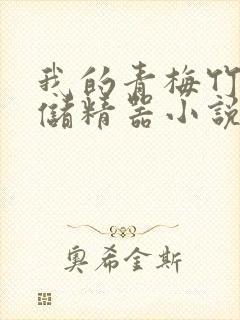 我的青梅竹
储精器小说
奥希金斯